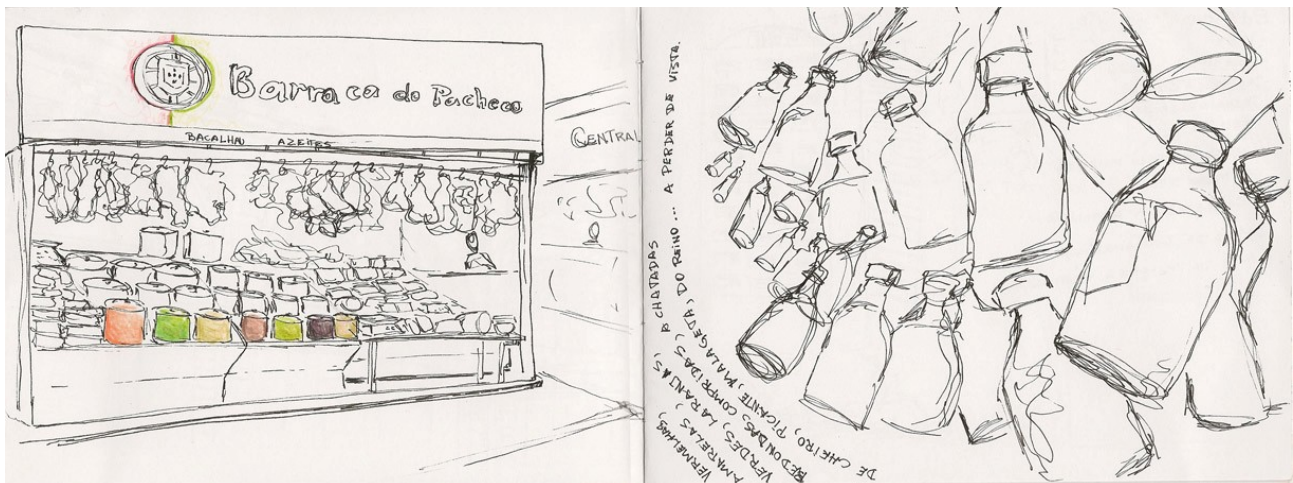 Barraca do Pacheco
BACALHAU AZEITES
CENTRAL
VERMELHAS,
AMARELAS,
VERDES, LARANJAS, ACHATADAS
REDONDAS, COMPRIDAS,
DE CHEIRO, PICANTE, MALAGETA, DO REINO... A PERDER DE VISTA.